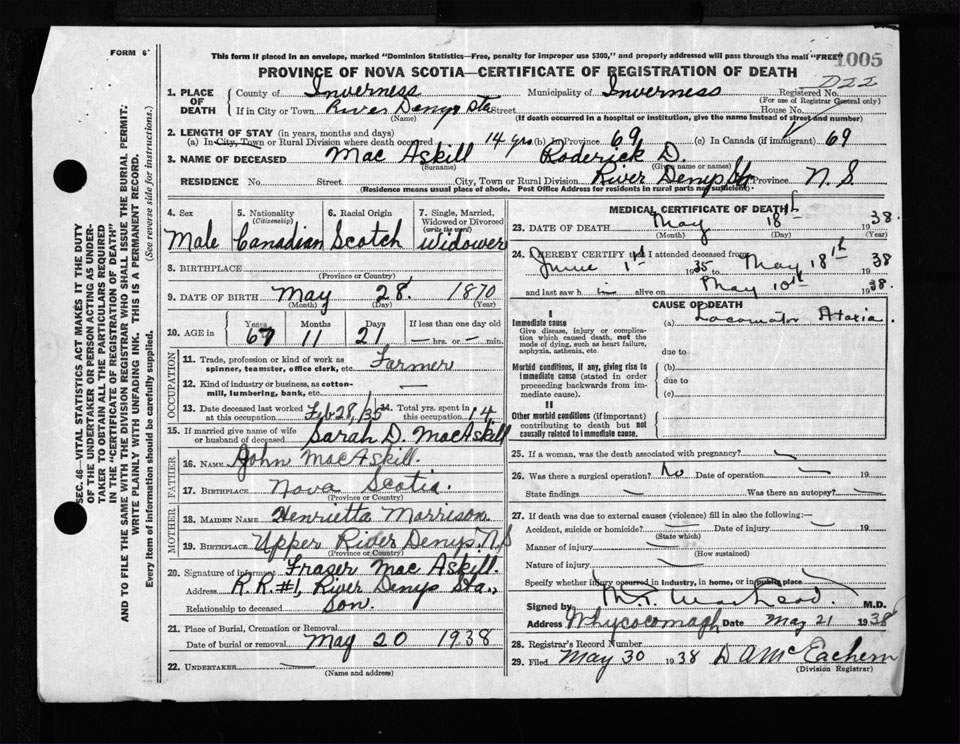 FORM 6
This form if placed in an envelope, marked "Dominion Statistics—Free, penalty for improper use $300," and properly addressed will pass through the mail "FREE"
1005
PROVINCE OF NOVA SCOTIA—CERTIFICATE OF REGISTRATION OF DEATH
1. PLACE OF DEATH
County of Inverness Municipality of Inverness Registered No.
(For use of Registrar General only)
If in City or Town River Denys Sta Street House No.
(Name) (If death occurred in a hospital or institution, give the name instead of street and number)
2. LENGTH OF STAY (in years, months and days)
(a) In City, Town or Rural Division where death occurred 14 yrs (b) In Province 69 (c) In Canada (if immigrant) 69
3. NAME OF DECEASED Mac Askill Roderick D.
(Surname) (Given name or names)
RESIDENCE No. Street City, Town or Rural Division River Denys Sta Province N.S.
(Residence means usual place of abode. Post Office Address for residents in rural parts not sufficient)
4. Sex Male
5. Nationality (Citizenship) Canadian
6. Racial Origin Scotch
7. Single, Married, Widowed or Divorced (write the word) Widower
8. BIRTHPLACE
(Province or Country)
9. DATE OF BIRTH May 28 1870
(Month) (Day) (Year)
10. AGE in Years 67 Months 11 Days 21 If less than one day old
— hrs. or — min.
OCCUPATION
11. Trade, profession or kind of work as spinner, teamster, office clerk, etc. Farmer
12. Kind of industry or business, as cotton-mill, lumbering, bank, etc. —
13. Date deceased last worked at this occupation Feb 28, /35 14. Total yrs. spent in this occupation 14
15. If married give name of wife or husband of deceased Sarah D. MacAskill
FATHER
16. NAME John MacAskill.
17. BIRTHPLACE Nova Scotia.
(Province or Country)
MOTHER
18. MAIDEN NAME Henrietta Morrison.
19. BIRTHPLACE Upper River Denys N S
(Province or Country)
20. Signature of informant Fraser Mac Askill.
Address R.R.#1, River Denys Sta.,
Relationship to deceased Son.
21. Place of Burial, Cremation or Removal
Date of burial or removal May 20 1938
22. UNDERTAKER —
(Name and address)
MEDICAL CERTIFICATE OF DEATH
23. DATE OF DEATH May 18th 1938.
(Month) (Day) (Year)
24. I HEREBY CERTIFY that I attended deceased from
June 1st 1935 to May 18th 1938
and last saw h im alive on May 10th 1938.
CAUSE OF DEATH
I
Immediate cause (a) Locomotor Ataxia.
Give disease, injury or complication which caused death, not the mode of dying, such as heart failure, asphyxia, asthenia, etc.
due to
Morbid conditions, if any, giving rise to immediate cause (stated in order proceeding backwards from immediate cause).
(b)
due to
(c)
II
Other morbid conditions (if important) contributing to death but not causally related to immediate cause.
25. If a woman, was the death associated with pregnancy? —
26. Was there a surgical operation? No Date of operation — 19
State findings — Was there an autopsy? —
27. If death was due to external causes (violence) fill in also the following:—
Accident, suicide or homicide? — Date of injury — 19
(State which)
Manner of injury —
(How sustained)
Nature of injury —
Specify whether injury occurred in industry, in home, or in public place
Signed by M.D.
Address Whycocomagh Date May 21 1938
28. Registrar's Record Number
29. Filed May 30 1938 D A McEachern
(Division Registrar)
SEC. 46—VITAL STATISTICS ACT MAKES IT THE DUTY
OF THE UNDERTAKER OR PERSON ACTING AS UNDER-
TAKER TO OBTAIN ALL THE PARTICULARS REQUIRED
IN THE "CERTIFICATE OF REGISTRATION OF DEATH"
AND TO FILE THE SAME WITH THE DIVISION REGISTRAR WHO SHALL ISSUE THE BURIAL PERMIT.
WRITE PLAINLY WITH UNFADING INK. THIS IS A PERMANENT RECORD.
Every item of information should be carefully supplied. (See reverse side for instructions.)